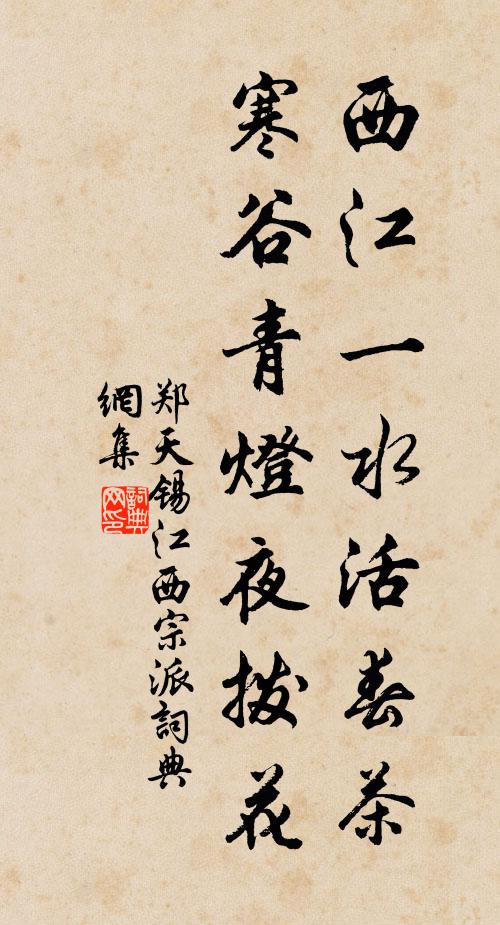 西江一水活春茶
寒谷青燈夜拨花
郑天锡江西宗派詞典
網集
詞典
网印